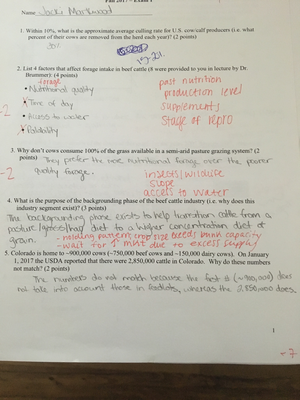 Fall 2017 – Exam 1
Name Jacki Markwood
1. Within 10%, what is the approximate average culling rate for U.S. cow/calf producers (i.e. what
percent of their cows are removed from the herd each year)? (2 points)
2. List 4 factors that affect forage intake in beef cattle (8 were provided to you in lecture by Dr.
Brummer): (4 points)
forage
• Nutritional quality
past nutrition
production level
-2
x Time of day
supplements
• Access to water
stage of repro
x Palability
3. Why don't cows consume 100% of the grass available in a semi-arid pasture grazing system? (2
points) They prefer the more nutritional forage over the poorer
-2
quality forage.
insects/wildlife
slope
access to water
4. What is the purpose of the backgrounding phase of the beef cattle industry (i.e. why does this
industry segment exist)? (3 points)
The backgrounding phase exists to help transition cattle from a
pasture/grass/hay diet to a higher concentration diet of
grain.
- holding pattern; crop size exceeds bunk capacity
- wait for 1° must due to excess supply
5. Colorado is home to ~900,000 cows (~750,000 beef cows and ~150,000 dairy cows). On January
1, 2017 the USDA reported that there were 2,850,000 cattle in Colorado. Why do these numbers
not match? (2 points)
The numbers do not match because the first # (~900,000) does
no take into account those in feedlots, whereas the 2,850,000 does.
1
-7